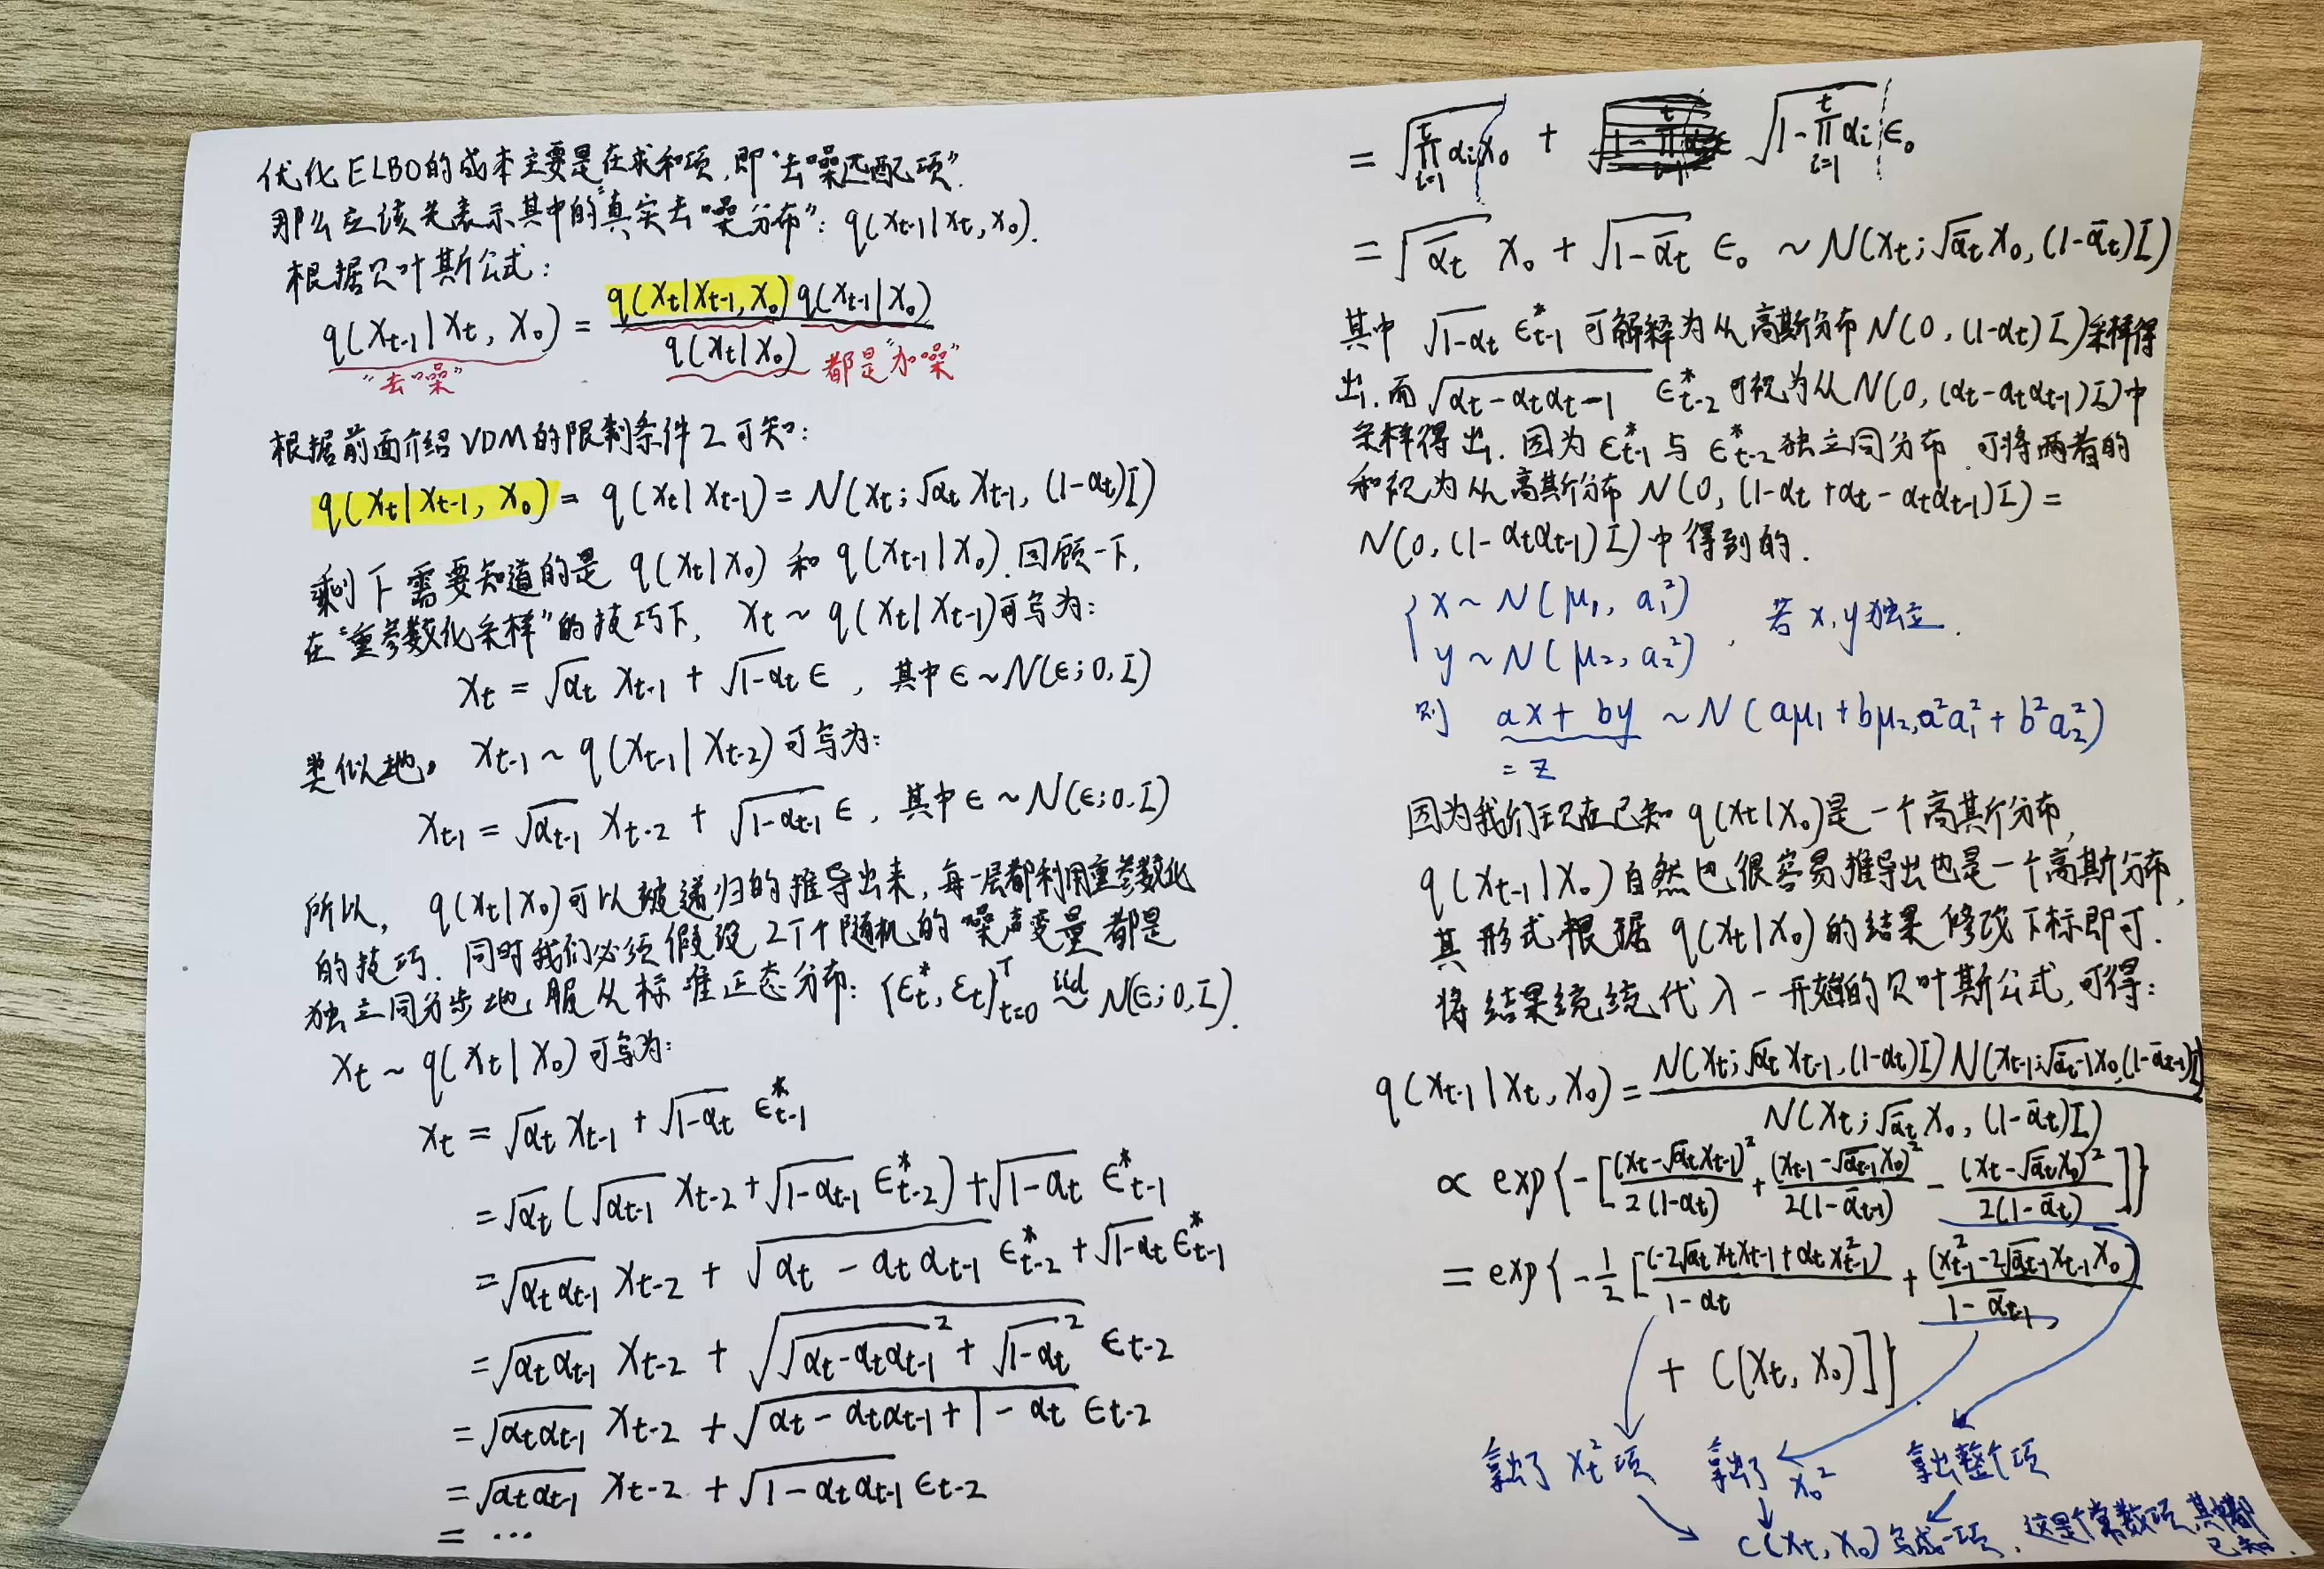 优化ELBO的成本主要是在求和项,即“去噪匹配项”.
那么应该先表示其中的“真实去噪分布”: q(x_{t-1}|x_t, x_0).
根据贝叶斯公式:
q(x_{t-1}|x_t, x_0) = \frac{q(x_t|x_{t-1}, x_0) q(x_{t-1}|x_0)}{q(x_t|x_0)}
“去噪”
都是“加噪”
根据前面介绍VDM的限制条件2可知:
q(x_t|x_{t-1}, x_0) = q(x_t|x_{t-1}) = N(x_t; √α_t x_{t-1}, (1-α_t)I)
剩下需要知道的是 q(x_t|x_0) 和 q(x_{t-1}|x_0). 回顾一下,
在“重参数化采样”的技巧下, x_t ~ q(x_t|x_{t-1})可写为:
x_t = \sqrt{α_t} x_{t-1} + \sqrt{1-α_t} ε, 其中 ε ~ N(ε; 0, I)
类似地, x_{t-1} ~ q(x_{t-1}|x_{t-2}) 可写为:
x_{t-1} = \sqrt{α_{t-1}} x_{t-2} + \sqrt{1-α_{t-1}} ε, 其中 ε ~ N(ε; 0, I)
所以, q(x_t|x_0)可以被递归的推导出来, 每一层都利用重参数化
的技巧. 同时我们必须假设 2T个随机的噪声变量都是
独立同分步地服从标准正态分布: {ε_t^*, ε_t}_{t=0}^T \overset{iid}{~} N(ε; 0, I).
x_t ~ q(x_t|x_0) 可写为:
x_t = \sqrt{α_t} x_{t-1} + \sqrt{1-α_t} ε_{t-1}^*
= \sqrt{α_t} (\sqrt{α_{t-1}} x_{t-2} + \sqrt{1-α_{t-1}} ε_{t-2}^*) + \sqrt{1-α_t} ε_{t-1}^*
= \sqrt{α_t α_{t-1}} x_{t-2} + \sqrt{α_t - α_t α_{t-1}} ε_{t-2}^* + \sqrt{1-α_t} ε_{t-1}^*
= \sqrt{α_t α_{t-1}} x_{t-2} + \sqrt{\sqrt{α_t-α_t α_{t-1}}^2 + \sqrt{1-α_t}^2} ε_{t-2}
= \sqrt{α_t α_{t-1}} x_{t-2} + \sqrt{α_t - α_t α_{t-1} + 1 - α_t} ε_{t-2}
= \sqrt{α_t α_{t-1}} x_{t-2} + \sqrt{1-α_t α_{t-1}} ε_{t-2}
= ...
= \sqrt{\prod_{i=1}^t α_i} x_0 + \sqrt{1-\prod_{i=1}^t α_i} ε_0
= \sqrt{\bar{α}_t} x_0 + \sqrt{1-\bar{α}_t} ε_0 ~ N(x_t; \sqrt{\bar{α}_t} x_0, (1-\bar{α}_t)I)
其中 \sqrt{1-α_t} ε_{t-1}^* 可解释为从高斯分布 N(0, (1-α_t)I)采样得
出. 而\sqrt{α_t-α_t α_{t-1}} ε_{t-2}^* 可视为从N(0, (α_t-α_t α_{t-1})I)中
采样得出. 因为 ε_{t-1}^* 与 ε_{t-2}^* 独立同分布, 可将两者的
和视为从高斯分布 N(0, (1-α_t+α_t-α_t α_{t-1})I) =
N(0, (1-α_t α_{t-1})I)中得到的.
{ x ~ N(μ_1, a_1^2)
y ~ N(μ_2, a_2^2) , 若x, y独立.
则 ax + by ~ N(aμ_1 + bμ_2, a^2a_1^2 + b^2a_2^2)
= z
因为我们现在已知 q(x_t|x_0)是一个高斯分布,
q(x_{t-1}|x_0)自然也很容易推导出也是一个高斯分布,
其形式根据 q(x_t|x_0)的结果修改下标即可.
将结果统统代入一开始的贝叶斯公式, 可得:
q(x_{t-1}|x_t, x_0) = \frac{N(x_t; \sqrt{α_t} x_{t-1}, (1-α_t)I) N(x_{t-1}; \sqrt{\bar{α}_{t-1}} x_0, (1-\bar{α}_{t-1})I)}{N(x_t; \sqrt{\bar{α}_t} x_0, (1-\bar{α}_t)I)}
∝ exp{-[\frac{(x_t-\sqrt{α_t} x_{t-1})^2}{2(1-α_t)} + \frac{(x_{t-1}-\sqrt{\bar{α}_{t-1}} x_0)^2}{2(1-\bar{α}_{t-1})} - \frac{(x_t-\sqrt{\bar{α}_t} x_0)^2}{2(1-\bar{α}_t)}]}
= exp{-\frac{1}{2}[\frac{(-2\sqrt{α_t} x_t x_{t-1} + α_t x_{t-1}^2)}{1-α_t} + \frac{(x_{t-1}^2 - 2\sqrt{\bar{α}_{t-1}} x_{t-1} x_0)}{1-\bar{α}_{t-1}}
+ C(x_t, x_0)]}
拿出了 x_t^2 项 拿出了 x_0^2 拿出整个项
C(x_t, x_0) 写成一项, 这是个常数项, 其中都
已知.